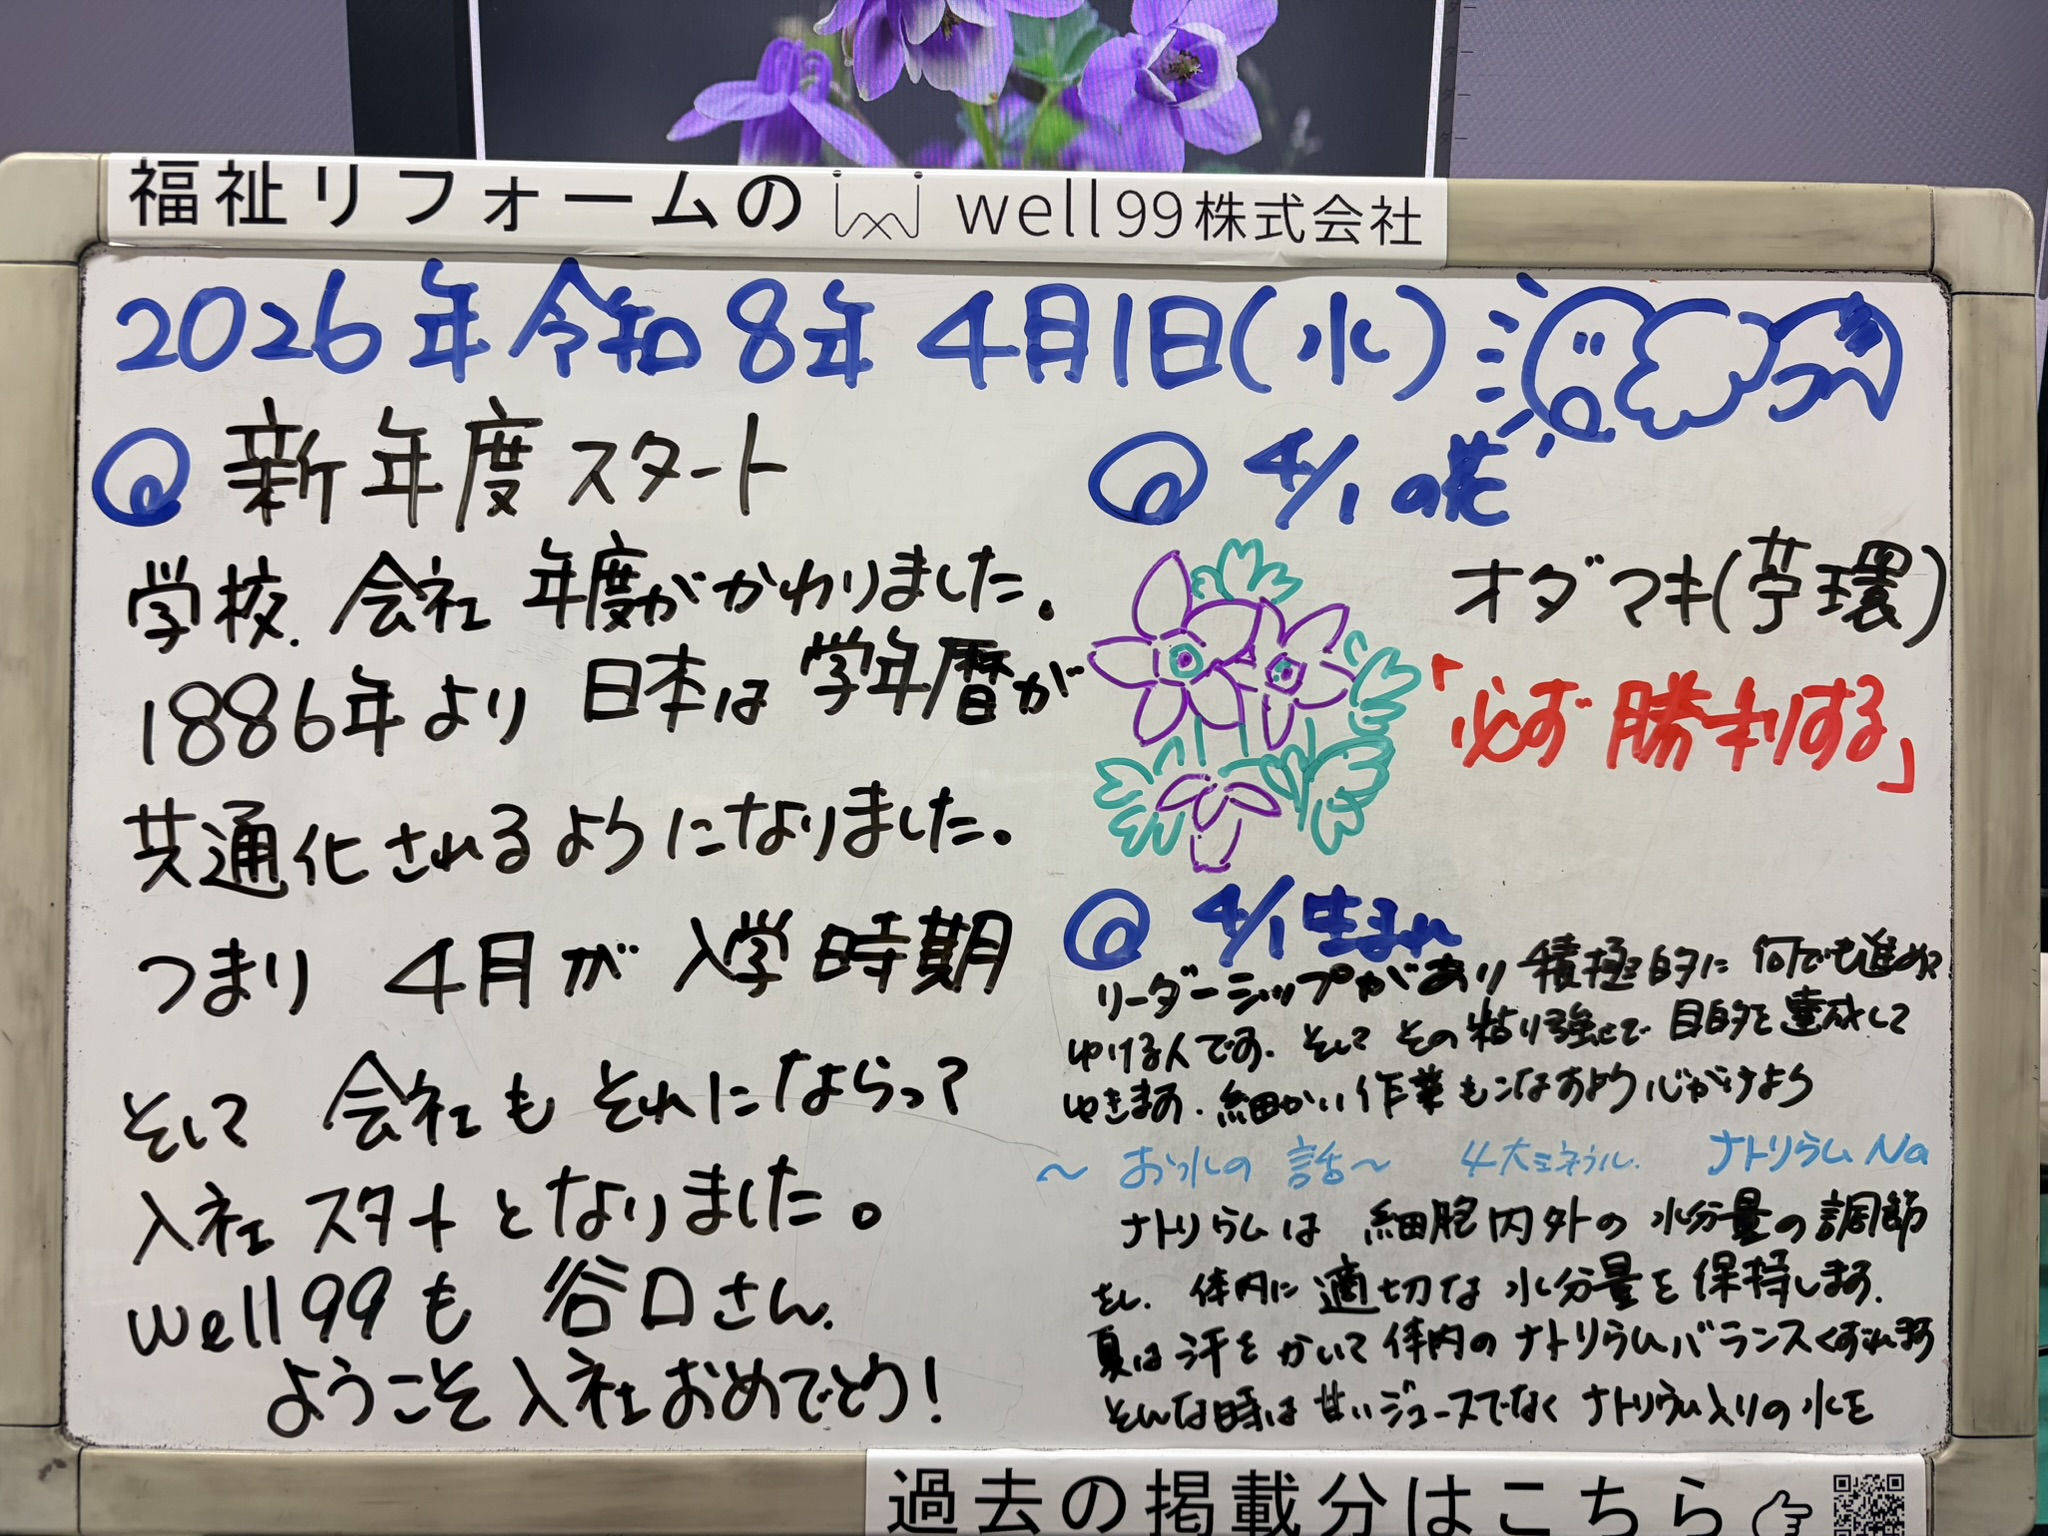 福祉リフォームの well99株式会社
2026年 令和8年 4月1日(水)
新年度スタート
学校、会社 年度がかわりました。
1886年より 日本は 学年暦が
共通化されるようになりました。
つまり 4月が 入学時期
そして 会社も それにならって
入社スタートとなりました。
well99も 谷口さん、
ようこそ入社おめでとう!
4/1の花
オダマキ(苧環)
「必ず勝利する」
4/1生まれ
リーダーシップがあり 積極的に 何でも進めて
ゆける人です。そして その粘り強さで 目的を達成して
ゆきます。細かい作業もこなすよう心がけよう
~お水の話~ 4大ミネラル. ナトリウムNa
ナトリウムは 細胞内外の 水分量の調節
をし、体内に適切な水分量を保持します。
夏は汗をかいて体内のナトリウムバランスくずれます
そんな時は甘いジュースでなくナトリウム入りの水を
過去の掲載分はこちら